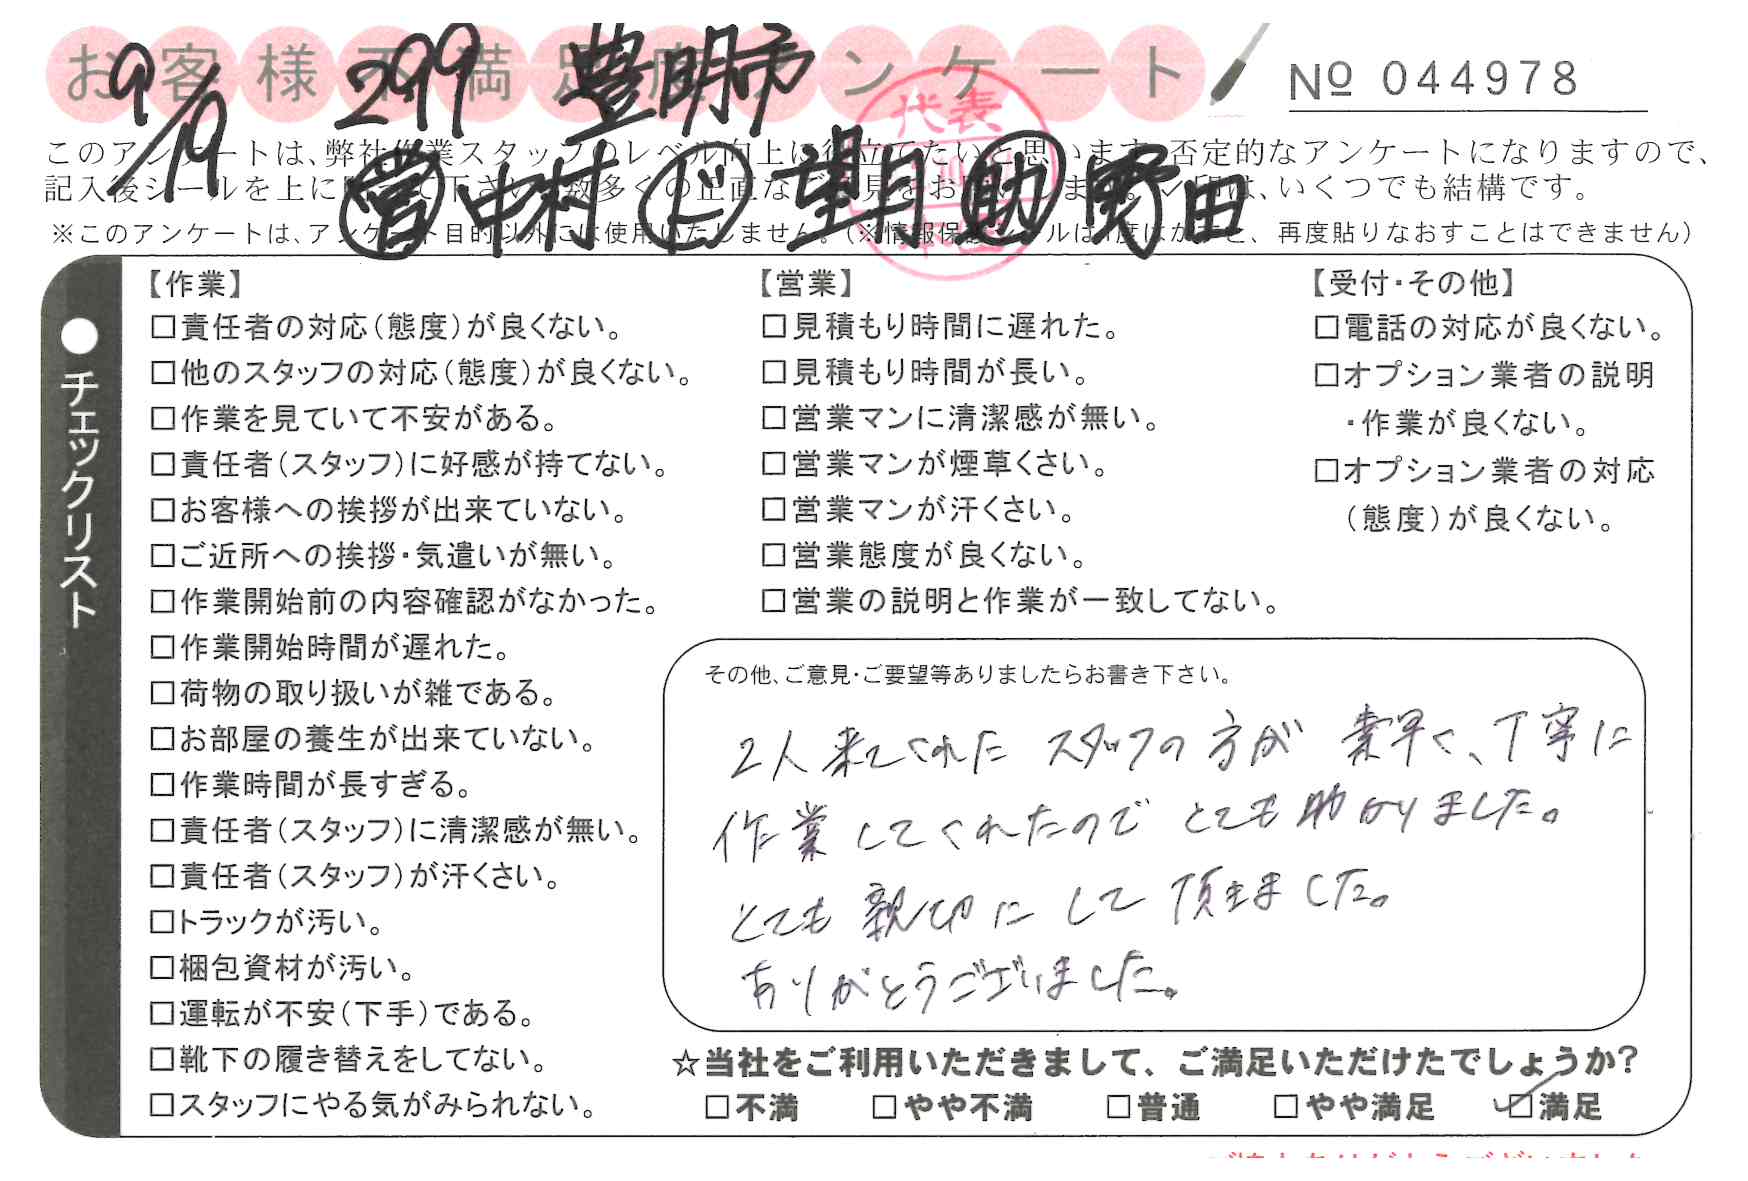 お客様不満足度アンケート
9/19 299 豊明市
№ 044978
このアンケートは、弊社作業スタッフのレベル向上に役立てたいと思います。否定的なアンケートになりますので、
記入後シールを上に貼って下さい。数多くの正直なご意見をお願いします。レ印は、いくつでも結構です。
営 中村 ド 望月 助 野田
※このアンケートは、アンケート目的以外には使用いたしません。(※情報保護シールは1度はがすと、再度貼りなおすことはできません)
代表
●チェックリスト
【作業】
□責任者の対応(態度)が良くない。
□他のスタッフの対応(態度)が良くない。
□作業を見ていて不安がある。
□責任者(スタッフ)に好感が持てない。
□お客様への挨拶が出来ていない。
□ご近所への挨拶・気遣いが無い。
□作業開始前の内容確認がなかった。
□作業開始時間が遅れた。
□荷物の取り扱いが雑である。
□お部屋の養生が出来ていない。
□作業時間が長すぎる。
□責任者(スタッフ)に清潔感が無い。
□責任者(スタッフ)が汗くさい。
□トラックが汚い。
□梱包資材が汚い。
□運転が不安(下手)である。
□靴下の履き替えをしてない。
□スタッフにやる気がみられない。
【営業】
□見積もり時間に遅れた。
□見積もり時間が長い。
□営業マンに清潔感が無い。
□営業マンが煙草くさい。
□営業マンが汗くさい。
□営業態度が良くない。
□営業の説明と作業が一致してない。
【受付・その他】
□電話の対応が良くない。
□オプション業者の説明
・作業が良くない。
□オプション業者の対応
(態度)が良くない。
その他、ご意見・ご要望等ありましたらお書き下さい。
2人来てくれたスタッフの方が素早く、丁寧に
作業してくれたのでとても助かりました。
とても親切にして頂きました。
ありがとうございました。
☆当社をご利用いただきまして、ご満足いただけたでしょうか?
□不満 □やや不満 □普通 □やや満足 ☑満足